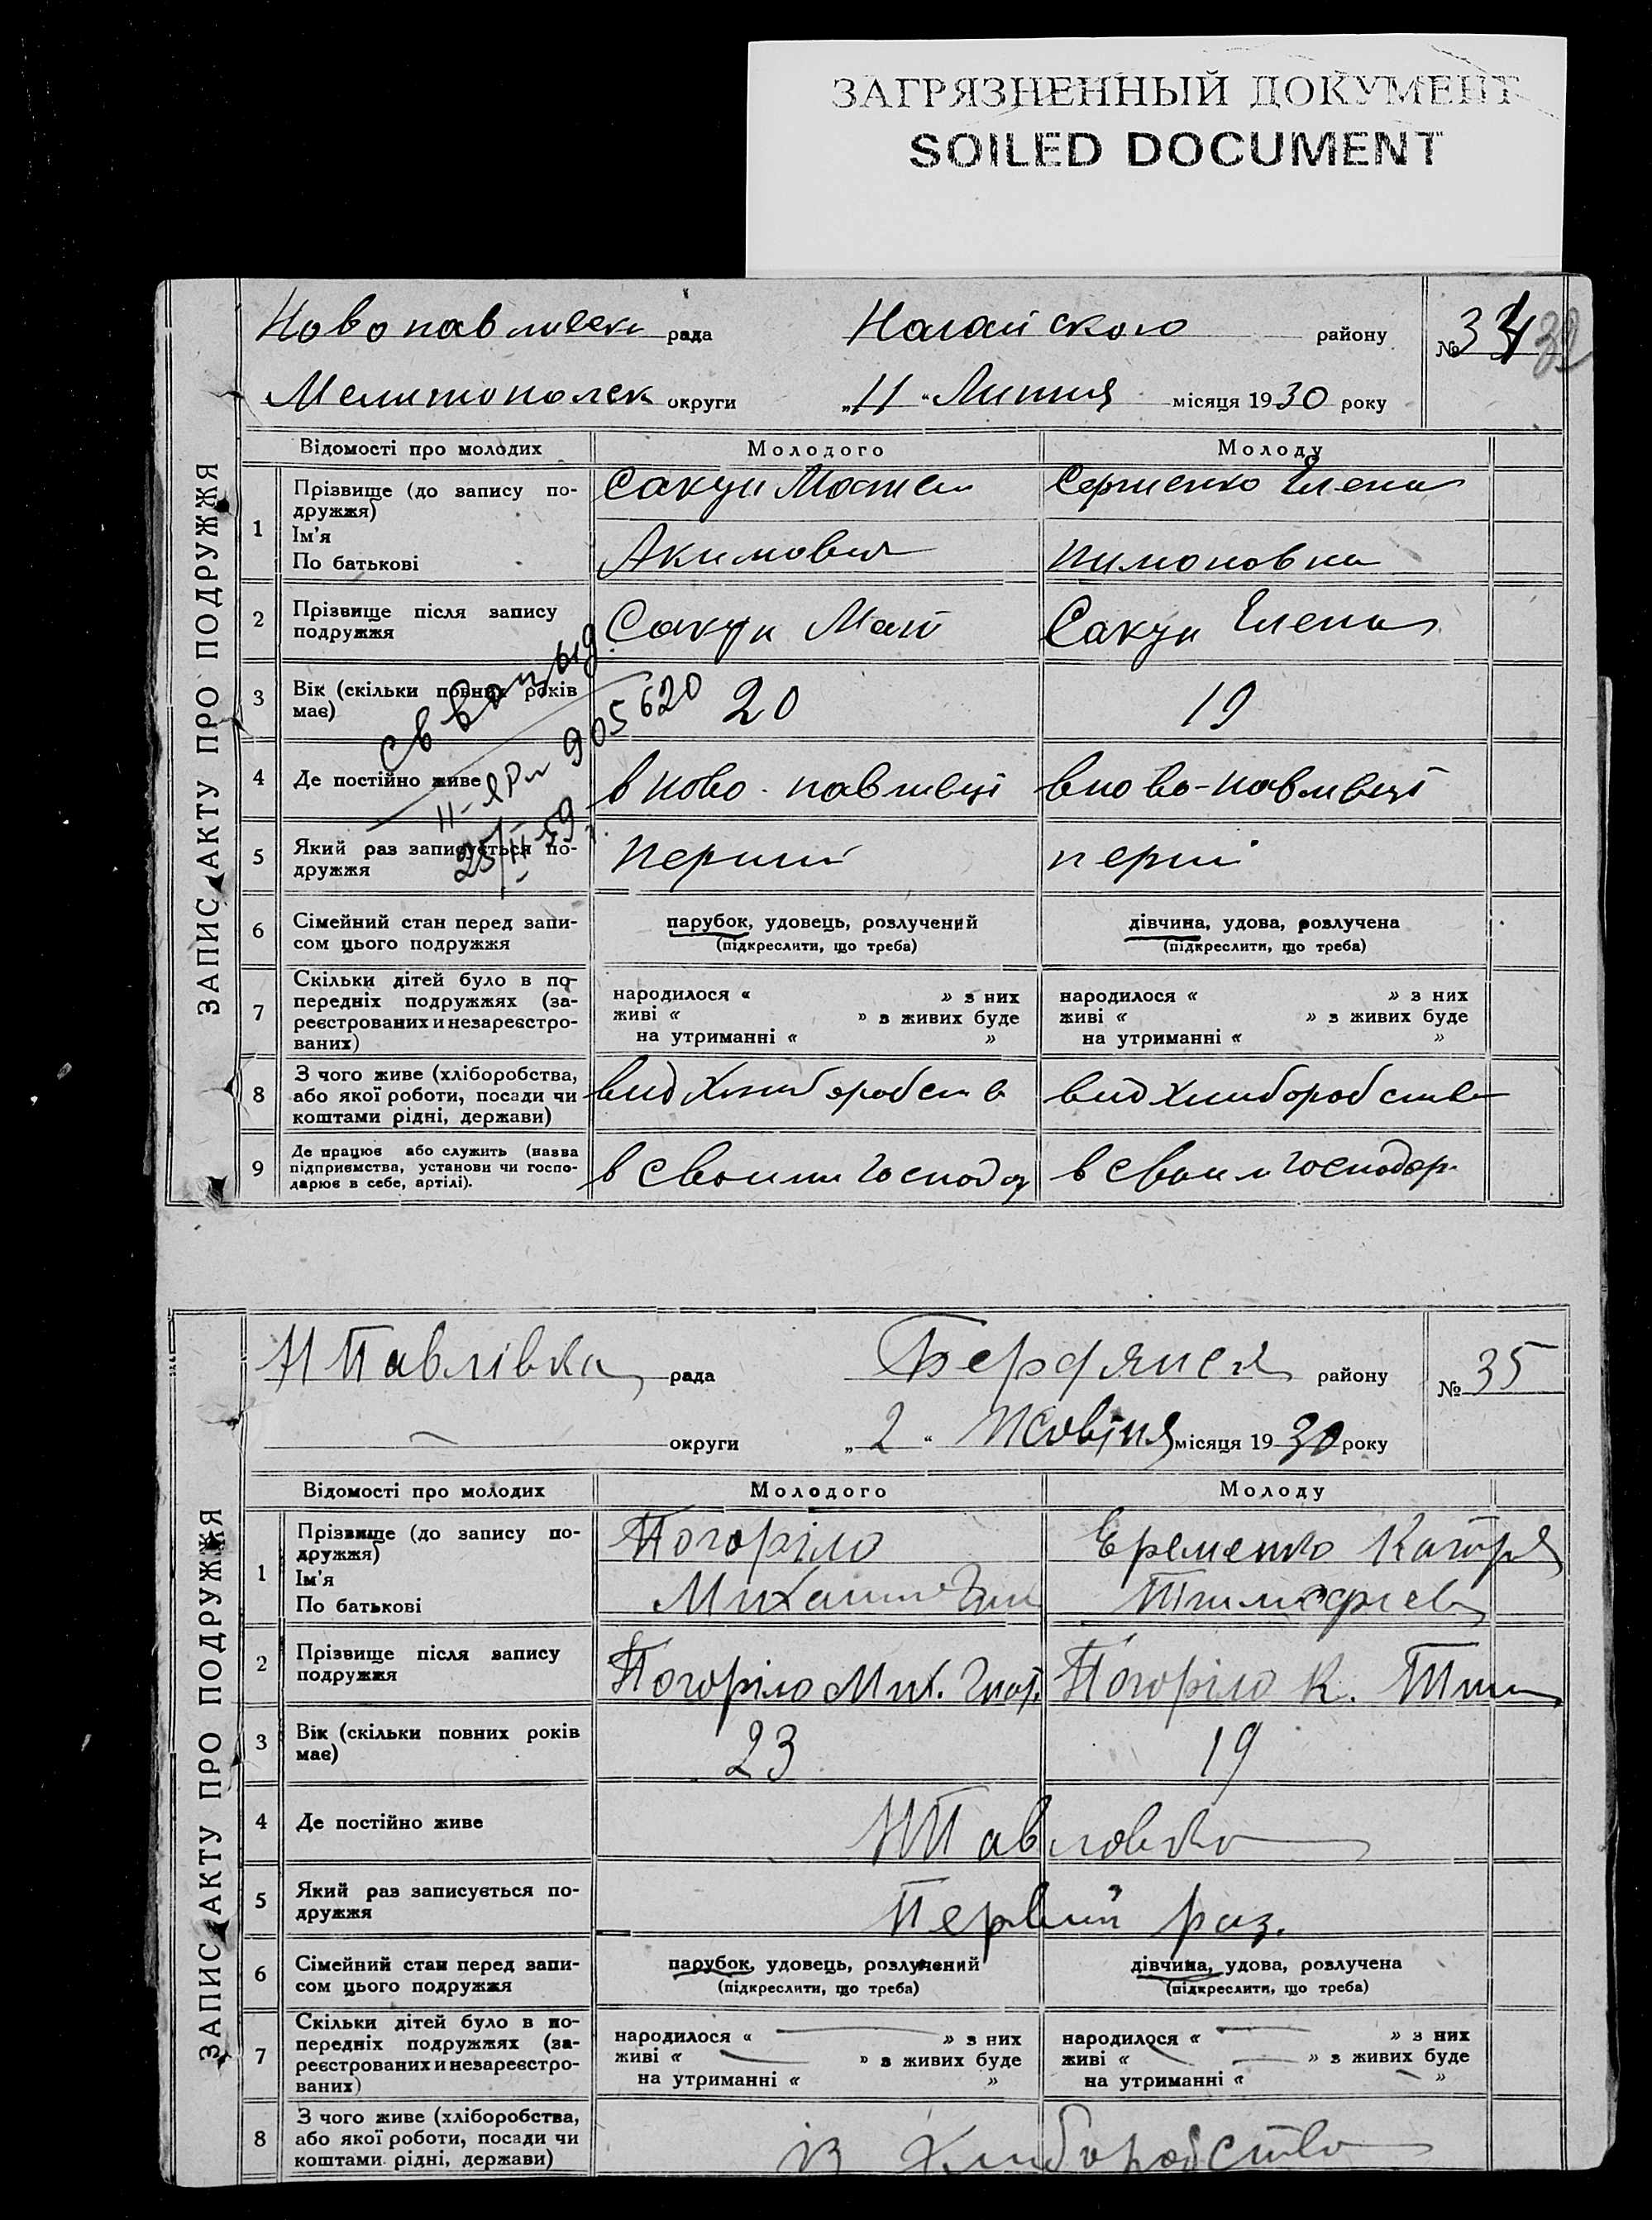 ЗАГРЯЗНЕННЫЙ ДОКУМЕНТ
SOILED DOCUMENT
ЗАПИС АКТУ ПРО ПОДРУЖЖЯ
Новопавливск рада Нагайского району № 34 32
Мелитополск округи „11“ Липня місяця 1930 року
Відомості про молодих Молодого Молоду
1 Прізвище (до запису по-
дружжя)
Ім'я
По батькові
Сакун Матвей Сергиенко Елена
Акимович Пимоновна
2 Прізвище після запису
подружжя
Сакун Мат Сакун Елена
3 Вік (скільки повних років
має)
20 19
св выд
II-ЯРМ 905620
25/II-59 г.
4 Де постійно живе
в ново-павливці в ново-павливці
5 Який раз записується по-
дружжя
перший перши
6 Сімейний стан перед запи-
сом цього подружжя
парубок, удовець, розлучений дівчина, удова, розлучена
(підкреслити, що треба) (підкреслити, що треба)
7 Скільки дітей було в по-
передніх подружжях (за-
реєстрованих и незареєстро-
ваних)
народилося « » з них народилося « » з них
живі « » з живих буде живі « » з живих буде
на утриманні « » на утриманні « »
8 З чого живе (хліборобства,
або якої роботи, посади чи
коштами рідні, держави)
вид хлиборобств вид хлиборобства
9 Де працює або служить (назва
підприємства, установи чи госпо-
дарює в себе, артілі).
в своим господар в своим господар.
ЗАПИС АКТУ ПРО ПОДРУЖЖЯ
Н Павлівка рада Бердянск району № 35
округи „2“ Жовтня місяця 1930 року
Відомості про молодих Молодого Молоду
1 Прізвище (до запису по-
дружжя)
Ім'я
По батькові
Погоріло Еременко Катря
Михаил Тимофиев
2 Прізвище після запису
подружжя
Погоріло Мих. Гнат. Погоріло К. Тим
3 Вік (скільки повних років
має)
23 19
4 Де постійно живе
Н Павловко
5 Який раз записується по-
дружжя
Первий раз.
6 Сімейний стан перед запи-
сом цього подружжя
парубок, удовець, розлучений дівчина, удова, розлучена
(підкреслити, що треба) (підкреслити, що треба)
7 Скільки дітей було в по-
передніх подружжях (за-
реєстрованих и незареєстро-
ваних)
народилося « » з них народилося « » з них
живі « » з живих буде живі « » з живих буде
на утриманні « » на утриманні « »
8 З чого живе (хліборобства,
або якої роботи, посади чи
коштами рідні, держави)
із Хлиборобство